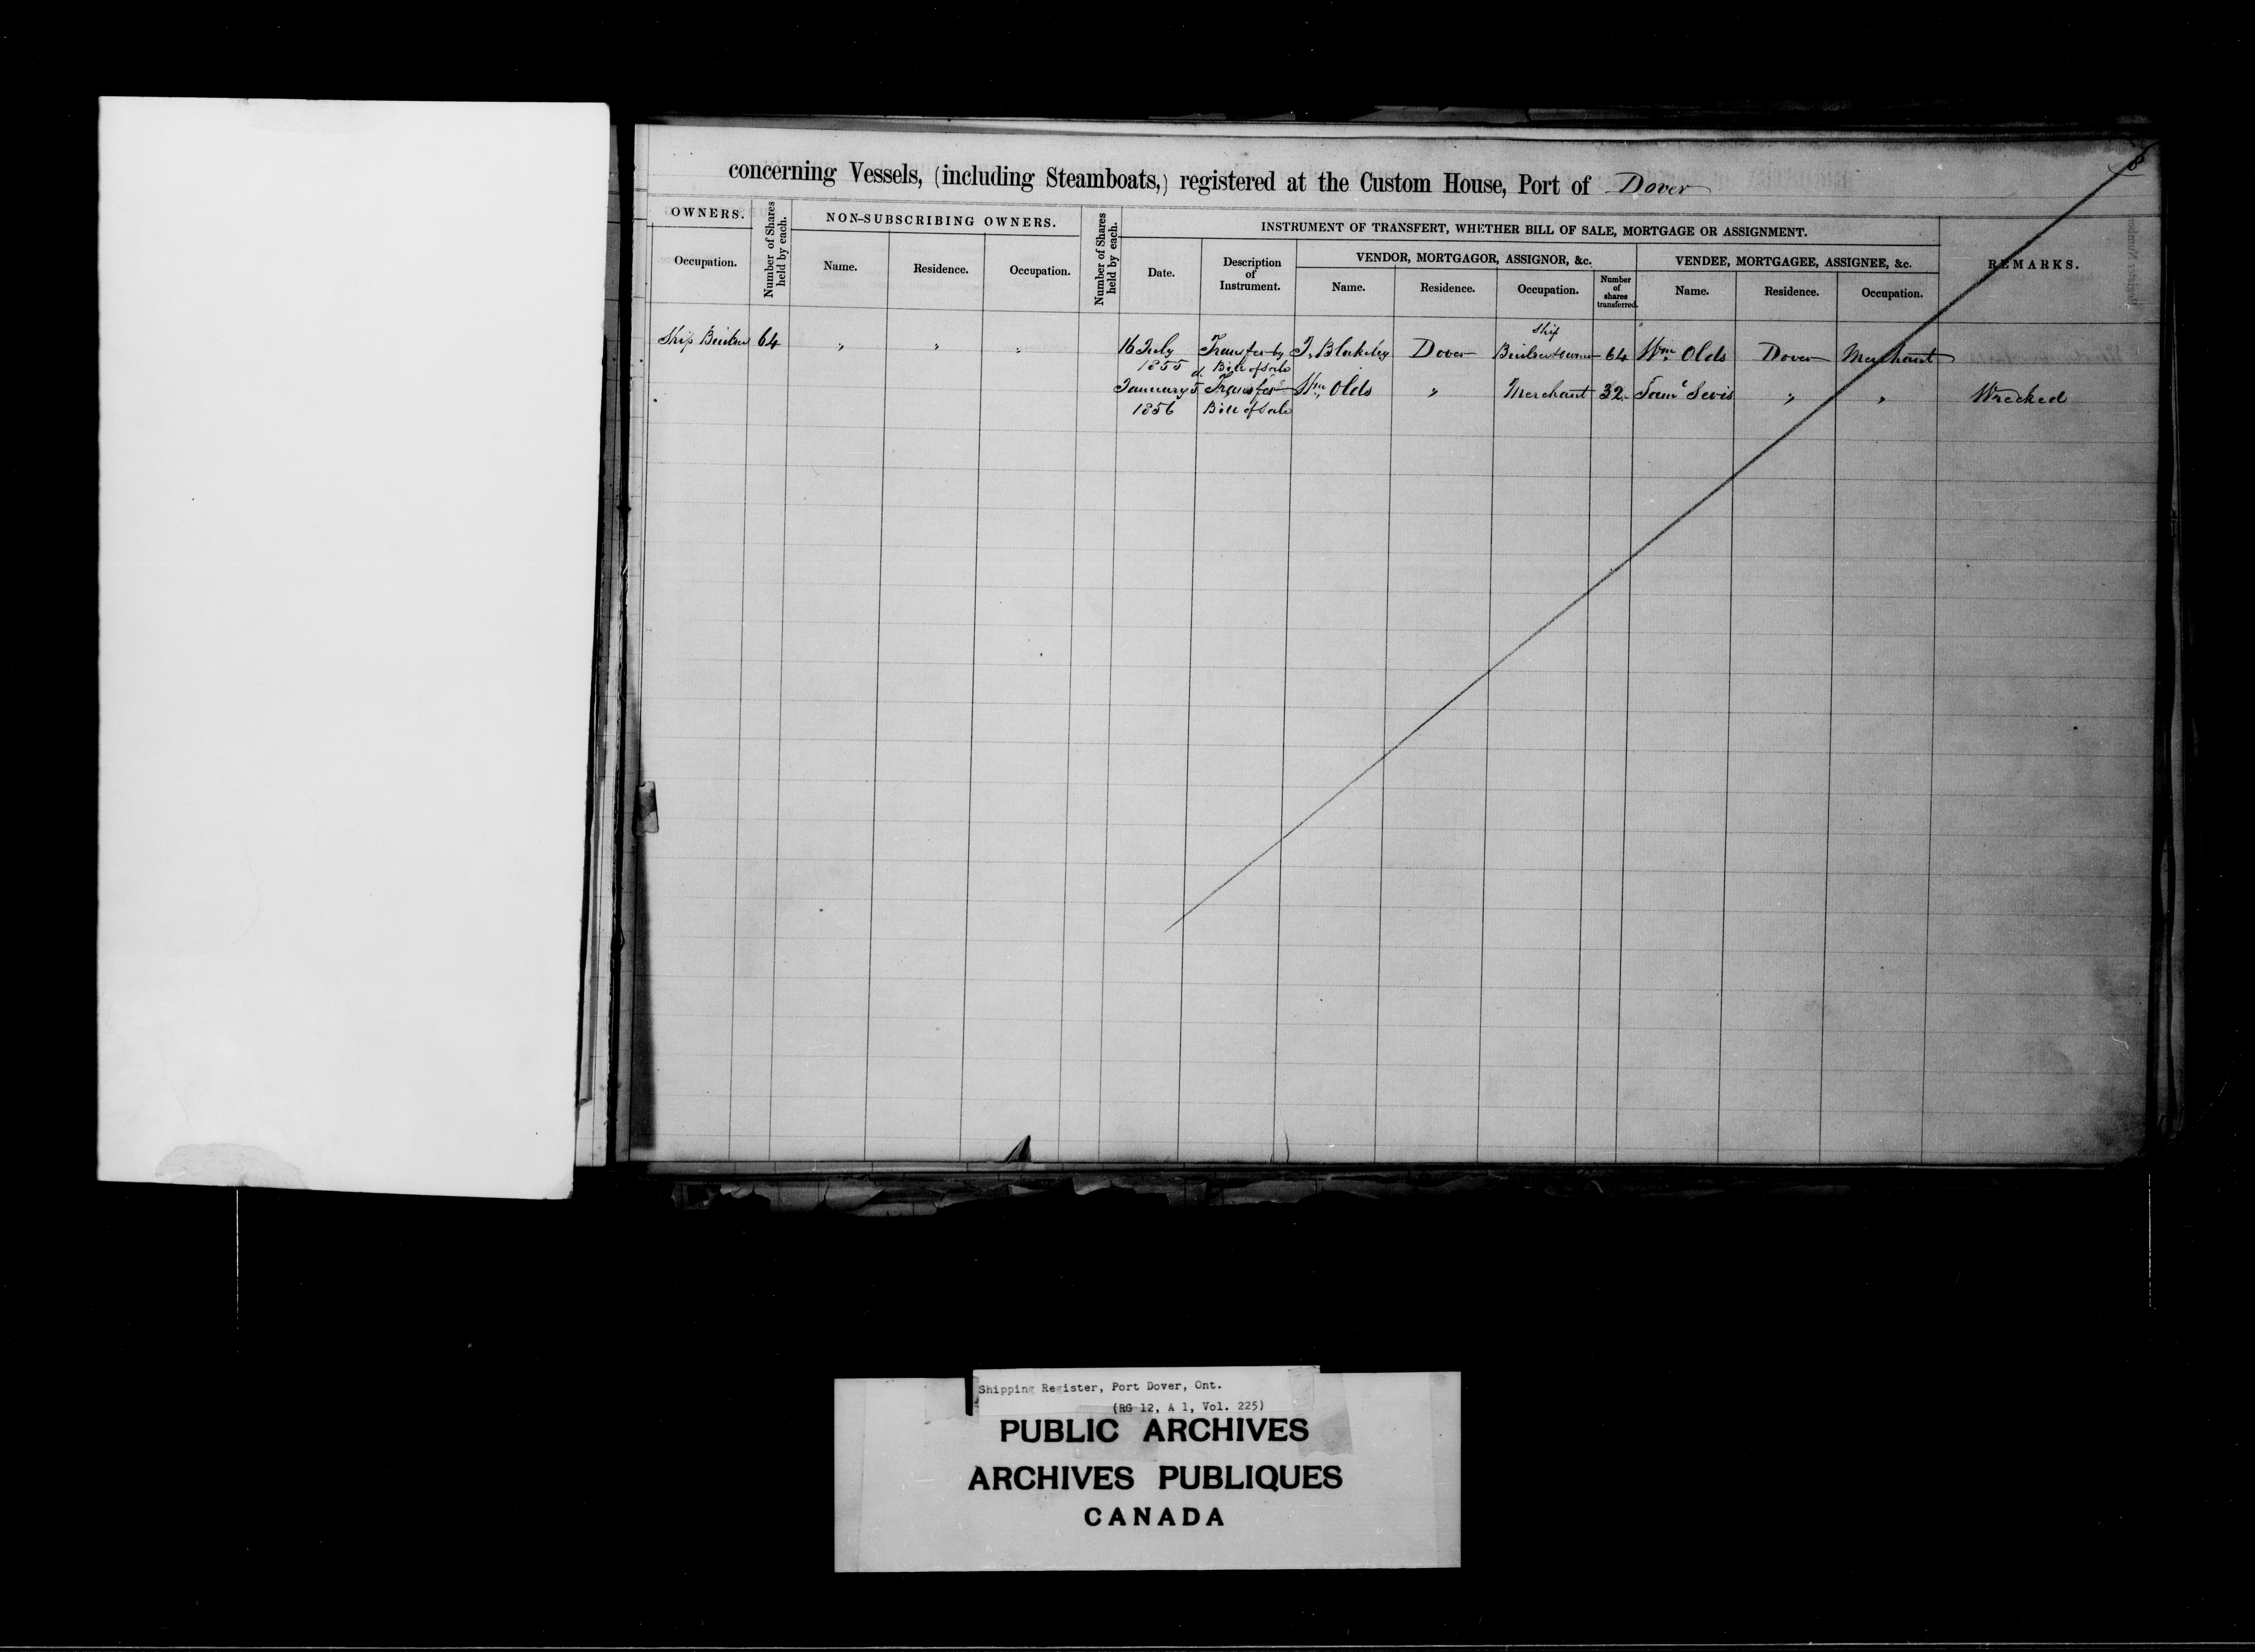 concerning Vessels, (including Steamboats,) registered at the Custom House, Port of Dover
OWNERS.
Number of Shares held by each.
NON-SUBSCRIBING OWNERS.
Number of Shares held by each.
INSTRUMENT OF TRANSFERT, WHETHER BILL OF SALE, MORTGAGE OR ASSIGNMENT.
REMARKS.
Occupation.
Name.
Residence.
Occupation.
Date.
Description of Instrument.
VENDOR, MORTGAGOR, ASSIGNOR, &c.
VENDEE, MORTGAGEE, ASSIGNEE, &c.
Name.
Residence.
Occupation.
Number of shares transferred.
Name.
Residence.
Occupation.
Ship Builder 64 " " " 16 July 1855 Transfer by Bill of Sale T. Blakeley Dover Ship Builder & owner 64 Wm Olds Dover Merchant
January 5 1856 Transfer Bill of Sale Wm Olds " Merchant 32 Saml " " Wrecked
Shipping Register, Port Dover, Ont.
(RG 12, A 1, Vol. 225)
PUBLIC ARCHIVES
ARCHIVES PUBLIQUES
CANADA